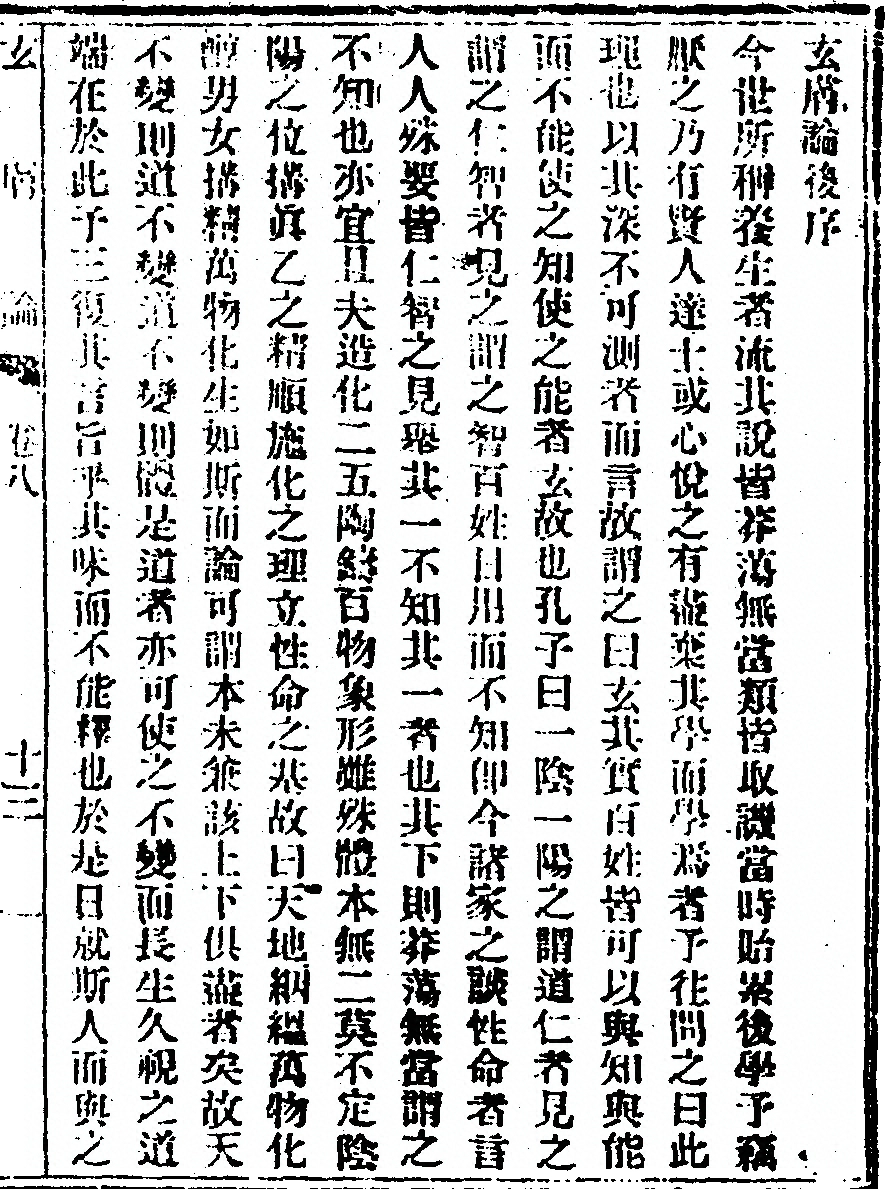 玄膚論後序
今世所稱養生者流其說皆莽蕩無當類皆取譏當時貽累後學予竊
厭之乃有賢人達士或心悅之有盡棄其學而學焉者予往問之曰此
理也以其深不可測者而言故謂之曰玄其實百姓皆可以與知與能
而不能使之知使之能者玄故也孔子曰一陰一陽之謂道仁者見之
謂之仁智者見之謂之智百姓日用而不知卽今諸家之談性命者言
人人殊要皆仁智之見舉其一不知其一者也其下則莽蕩無當謂之
不知也亦宜且夫造化二五陶鑄百物象形雖殊體本無二莫不定陰
陽之位搆眞乙之精順施化之理立性命之基故曰天地絪縕萬物化
醇男女搆精萬物化生如斯而論可謂本末兼該上下俱盡者矣故天
不變則道不變道不變則體是道者亦可使之不變而長生久視之道
端在於此予三復其言旨乎其味而不能釋也於是日就斯人而與之
玄膚論 卷八 十三